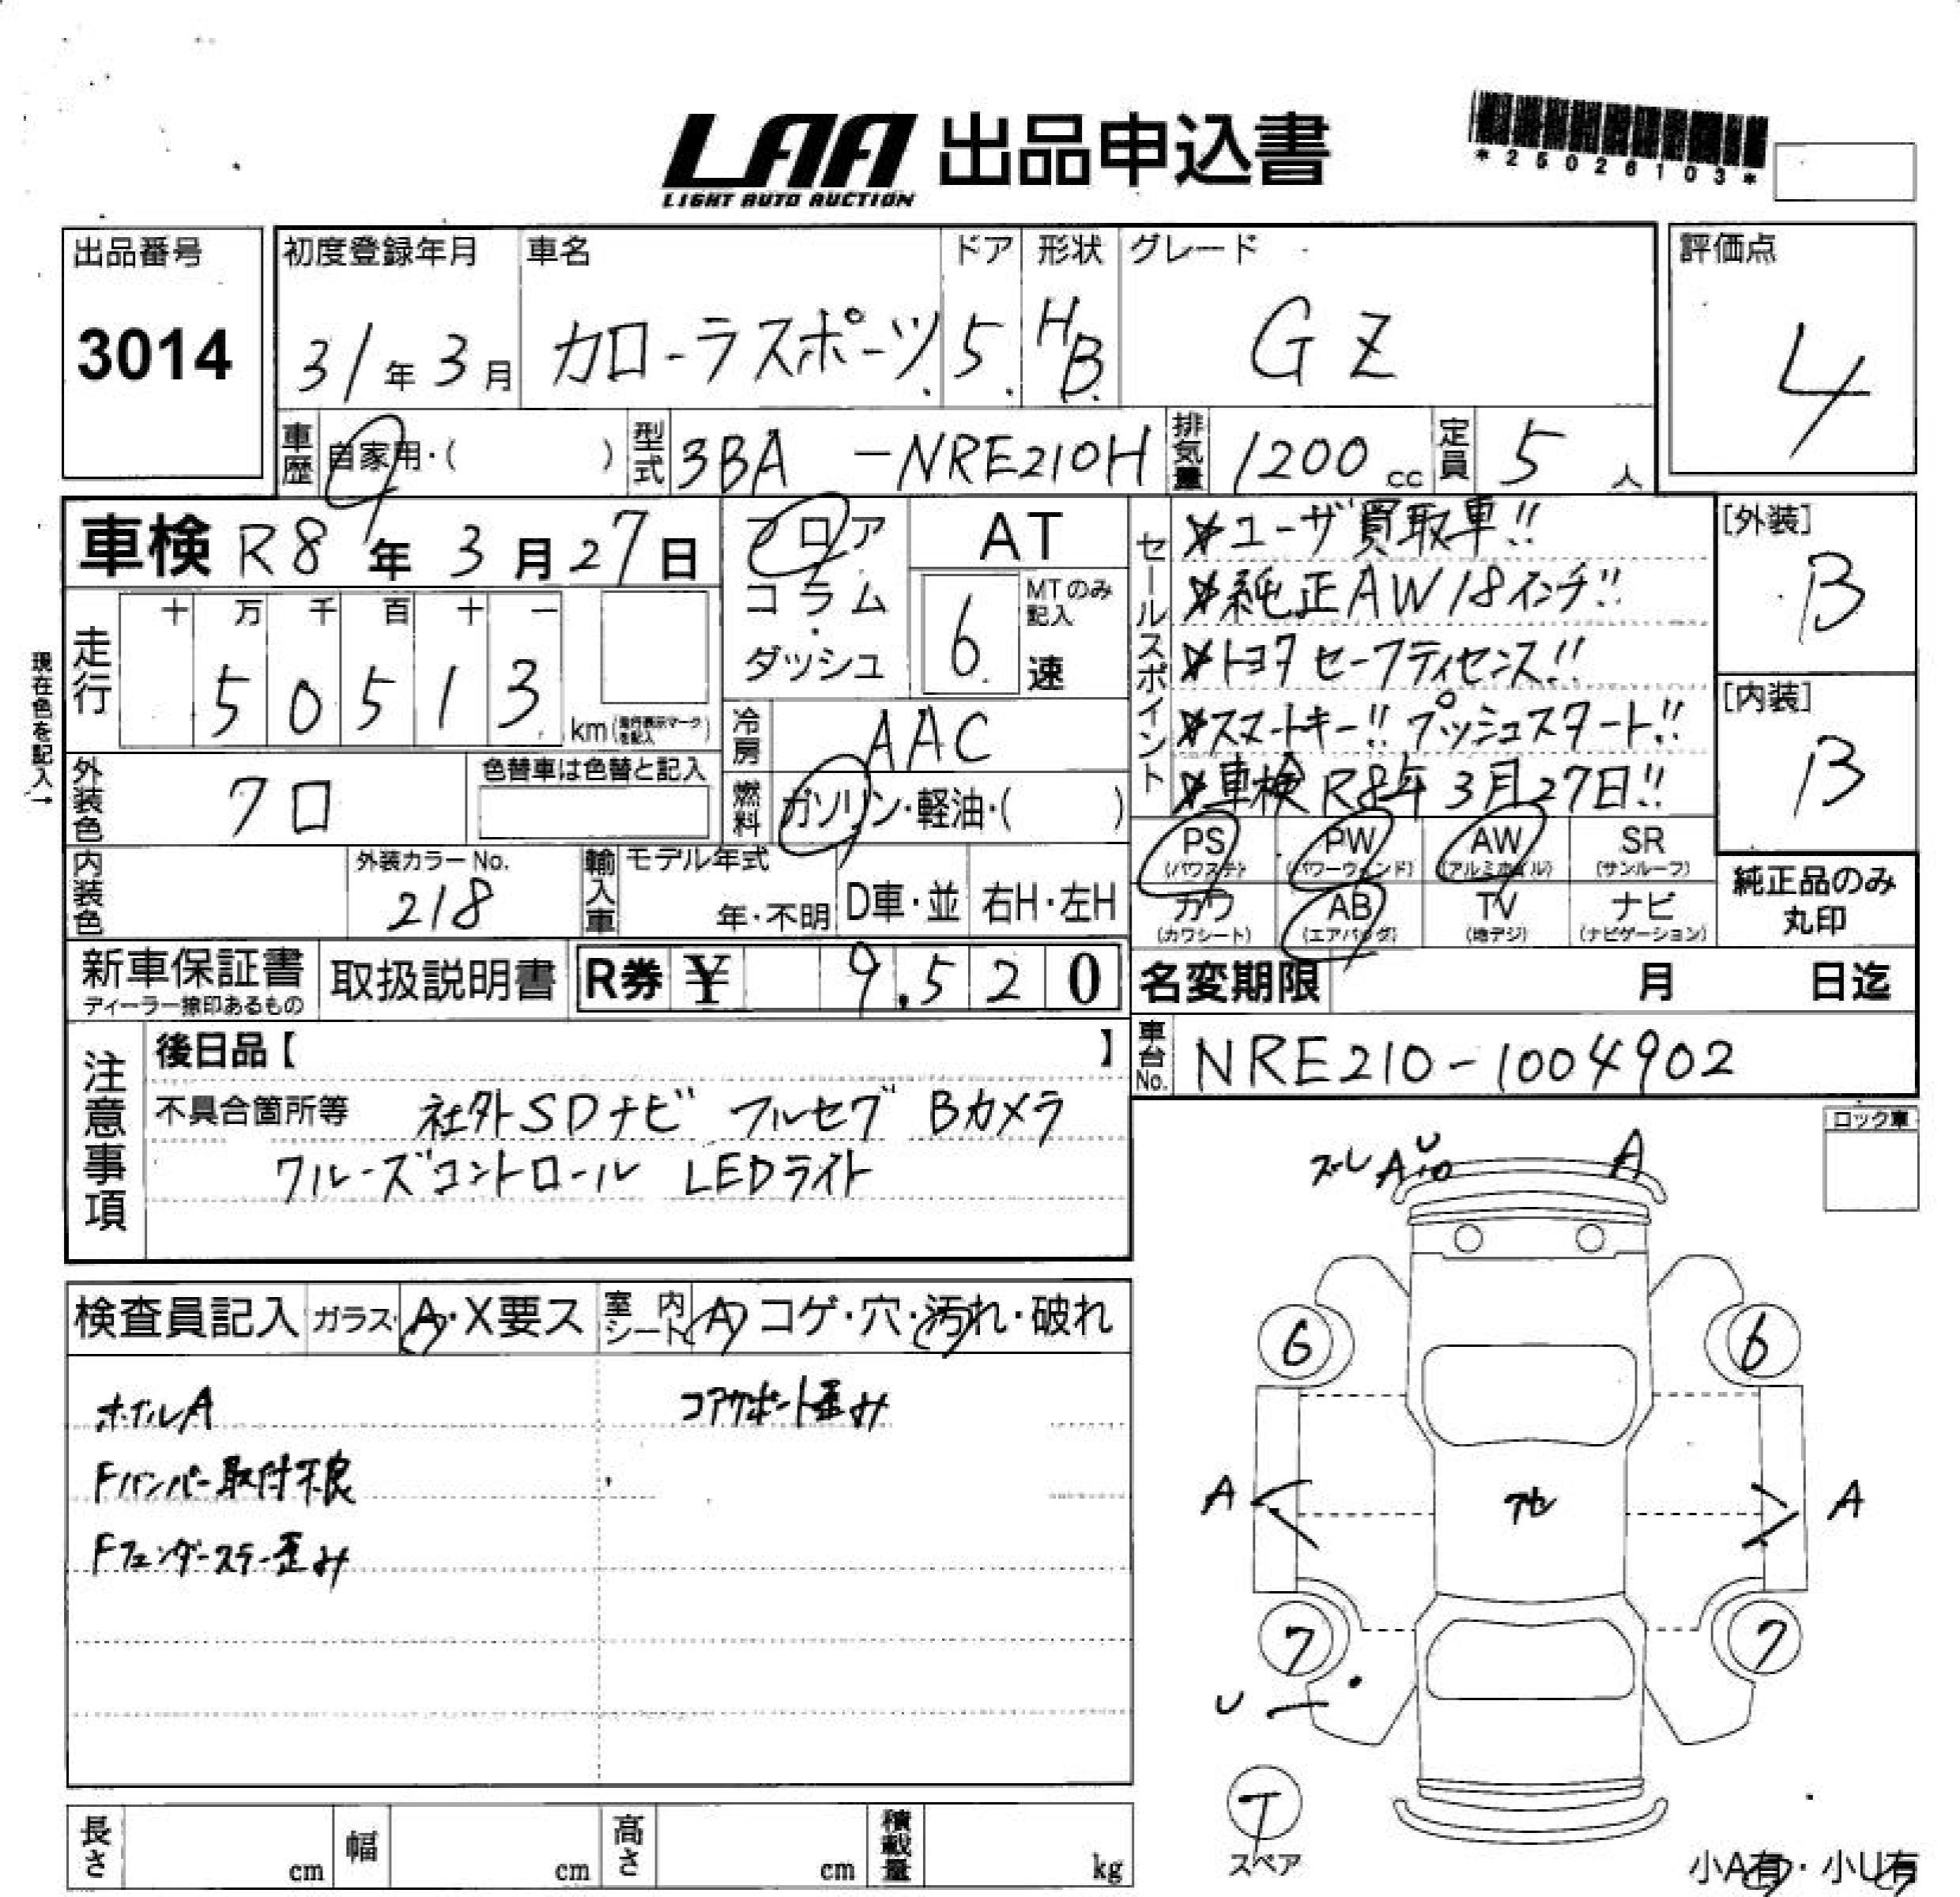 LAA 出品申込書
LIGHT AUTO AUCTION
*25026103*
出品番号 初度登録年月 車名 ドア 形状 グレード 評価点
3014 31年3月 カローラスポーツ 5 HB GZ 4
車歴 自家用・( ) 型式 3BA -NRE210H 排気量 1200cc 定員 5人
車検 R8年3月27日
フロア
コラム・
ダッシュ
AT
MTのみ記入
6速
セールスポイント
ユーザ買取車!!
純正AW18インチ!!
トヨタセーフティセンス!!
スマートキー!! プッシュスタート!!
車検R8年3月27日!!
[外装]
B
[内装]
B
現在色を記入→
走行 十 万 千 百 十 一
50513 km
冷房 AAC
外装色 クロ 色替車は色替と記入
燃料 ガソリン・軽油・( )
PS (パワステ) PW (パワーウィンド) AW (アルミホイル) SR (サンルーフ)
カワ (カワシート) AB (エアバッグ) TV (地デジ) ナビ (ナビゲーション)
純正品のみ
丸印
内装色 外装カラーNo. 218 輸入車 モデル年式 年・不明 D車・並 右H・左H
新車保証書 取扱説明書 R券 ¥ 9.520
ディーラー捺印あるもの
名変期限 月 日迄
注意事項
後日品【 】
不具合箇所等 社外SDナビ フルセグ Bカメラ
クルーズコントロール LEDライト
車台No. NRE210-1004902
ロック車
ズレ A U A
検査員記入 ガラス A・X要ス 室内シート A コゲ・穴・汚れ・破れ
ホイルA コアサポート歪み
Fバンパー取付不良
Fフェンダーステー歪み
6 6
A A
7 7
U
T
スペア
小A有・小U有
長さ cm 幅 cm 高さ cm 積載量 kg